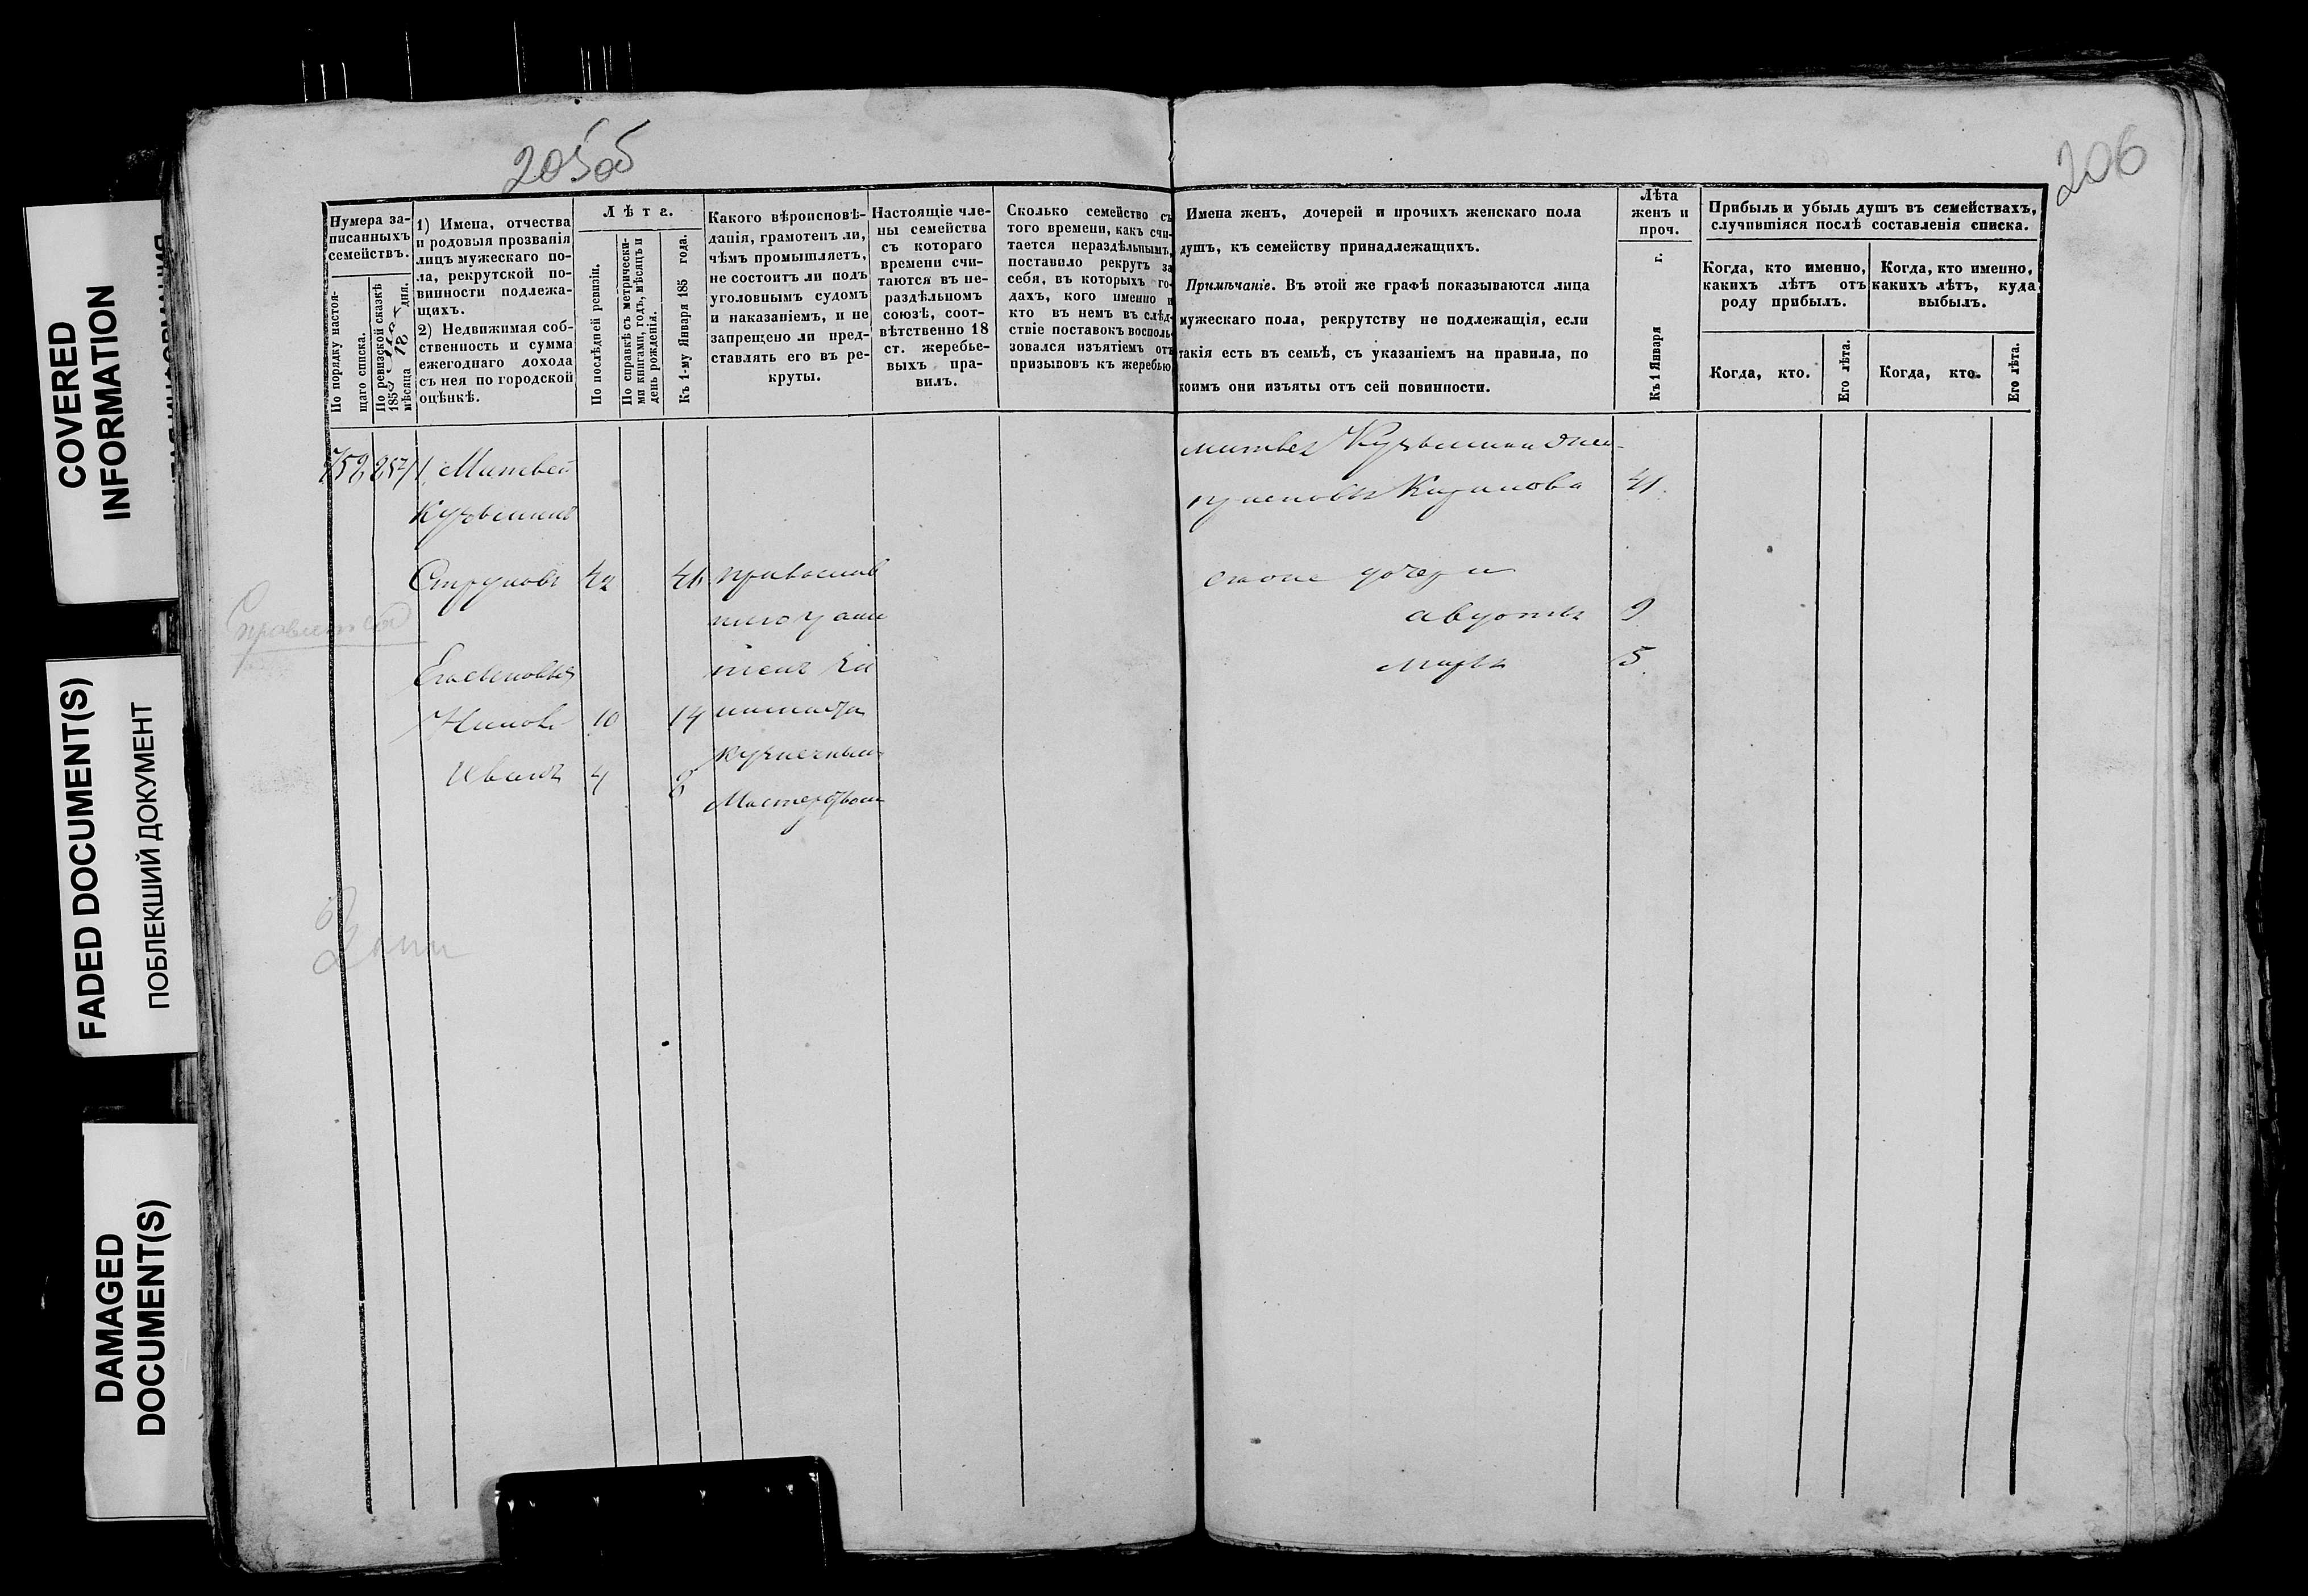 COVERED
INFORMATION
FADED DOCUMENT(S)
ПОБЛЕКШИЙ ДОКУМЕНТ
DAMAGED
DOCUMENT(S)
205об
206
Нумера за-
писанныхъ
семействъ.
По порядку настоя-
щаго списка.
По ревизской сказкѣ
185 мѣсяца 18 дня.
1) Имена, отчества
и родовыя прозванія
лицъ мужескаго по-
ла, рекрутской по-
винности подлежа-
щихъ.
2) Недвижимая соб-
ственность и сумма
ежегоднаго дохода
съ нея по городской
оцѣнкѣ.
Лѣта.
По послѣдней ревизіи.
По справкѣ съ метрически-
ми книгами, годъ, мѣсяцъ и
день рожденія.
Къ 1-му Января 185 года.
Какого вѣроисповѣ-
данія, грамотенъ ли,
чѣмъ промышляетъ,
не состоитъ ли подъ
уголовнымъ судомъ
и наказаніемъ, и не
запрещено ли пред-
ставлять его въ ре-
круты.
Настоящіе чле-
ны семейства
съ котораго
времени счи-
таются въ не-
раздѣльномъ
союзѣ, соот-
вѣтственно 18
ст. жеребье-
выхъ пра-
вилъ.
Сколько семейство съ
того времени, какъ счи-
тается нераздѣльнымъ,
поставило рекрутъ за
себя, въ которыхъ го-
дахъ, кого именно и
кто въ немъ въ слѣд-
ствіе поставокъ восполь-
зовался изъятіемъ отъ
призывовъ къ жеребью
Имена женъ, дочерей и прочихъ женскаго пола
душъ, къ семейству принадлежащихъ.
Примѣчаніе. Въ этой же графѣ показываются лица
мужескаго пола, рекрутству не подлежащія, если
такія есть въ семьѣ, съ указаніемъ на правила, по
коимъ они изъяты отъ сей повинности.
Лѣта
женъ и
проч.
Къ 1 Января г.
Прибыль и убыль душъ въ семействахъ,
случившіяся послѣ составленія списка.
Когда, кто именно,
какихъ лѣтъ отъ
роду прибылъ.
Когда, кто именно,
какихъ лѣтъ, куда
выбылъ.
Когда, кто.
Его лѣта.
Когда, кто.
Его лѣта.
752 257 1, Матвей
Кузьминъ
Струковъ 42 46 православ
Якову 10 14
Иванъ 4 8 кузнечным
Мастерством
матвея Кузьмина жен
41.
дочери
авдотья 9
марья 5.